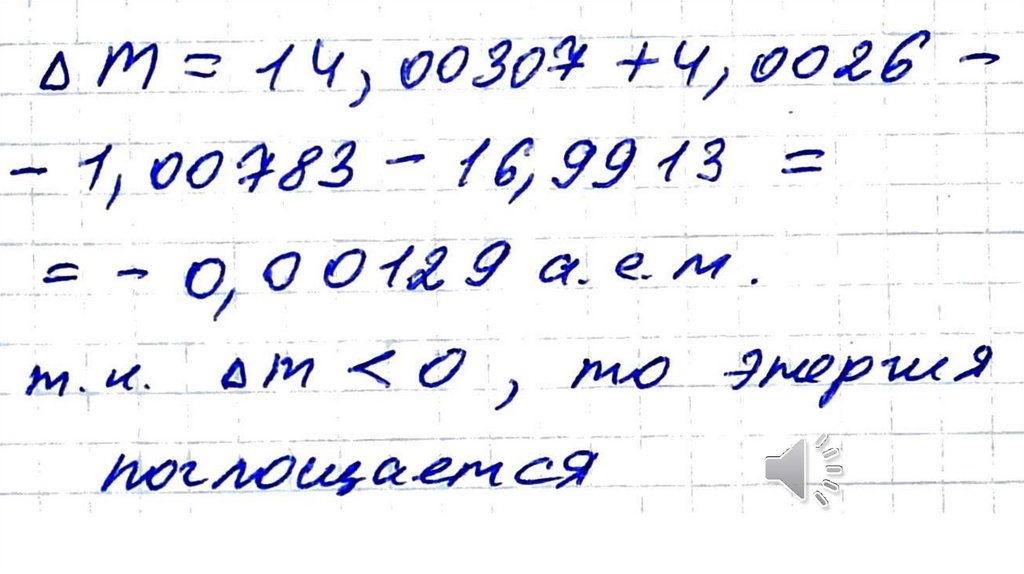 Δ m = 14,00307 + 4,0026 -
- 1,00783 - 16,9913 =
= - 0,00129 а.е.м.
т.к. Δm < 0, то энергия
поглощается